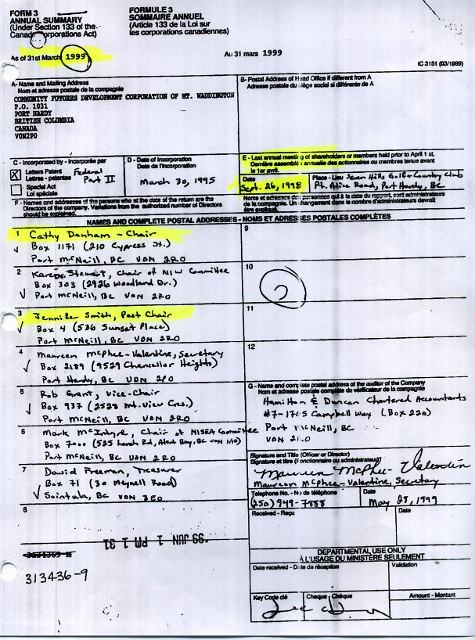 FORM 3
ANNUAL SUMMARY
(Under Section 133 of the
Canada Corporations Act)
FORMULE 3
SOMMAIRE ANNUEL
(Article 133 de la Loi sur
les corporations canadiennes)
As of 31st March 1999
Au 31 mars 1999
IC 3151 (03/1999)
A - Name and Mailing Address
Nom et adresse postale de la compagnie
COMMUNITY FUTURES DEVELOPMENT CORPORATION OF MT. WADDINGTON
P.O. 1031
PORT HARDY
BRITISH COLUMBIA
CANADA
V0N2P0
B - Postal Address of Head Office if different from A
Adresse postale du siège social si différente de A
C - Incorporated by - Incorporée par
X Letters Patent
Lettres - patentes
Federal
Part II
Special Act
Loi spéciale
D - Date of Incorporation
Date de l'incorporation
March 30, 1995
E - Last annual meeting of shareholders or members held prior to April 1st.
Dernière assemblée annuelle des actionnaires ou membres tenue avant
le 1er avril.
Date
Sept. 26, 1998
Place - Lieu Seven Hills Golf & Country Club
Port Hardy, BC
F - Names and addresses of the persons who at the date of the return are the
Directors of the company. Variations from the authorized number of Directors
should be explained.
NAMES AND COMPLETE POSTAL ADDRESSES - NOMS ET ADRESSES POSTALES COMPLÈTES
1 Cathy Denham - Chair
Box 1171 (210 Cypress St.)
Port McNeill, BC V0N 2R0
2 Karen Stewart, Chair of NIW Committee
Box 303 (2926 Woodland Dr.)
Port McNeill, BC V0N 2R0
3 Jennifer Smith, Past Chair
Box 4 (536 Sunset Place)
Port McNeill, BC V0N 2R0
4 Maureen McPhee-Valentine, Secretary
Box 2189 (9529 Chancellor Heights)
Port Hardy, BC V0N 2P0
5 Rob Grant, Vice-Chair
Box 937 (2528 Mt. View Cres.)
Port McNeill, BC V0N 2R0
6 Mark McIntyre, Chair of NISEA Committee
Port McNeill, BC V0N 2R0
7 David Freeman, Treasurer
Box 71 (30 Meynell Road)
Sointula, BC V0N 3E0
8
9
10
11
12
G - Name and complete postal address of the auditor of the Company
Hamilton & Duncan Chartered Accountants
#7-1705 Campbell Way (Box 220)
Port McNeill, BC
Signature and Title (Officer or Director)
Maureen McPhee-Valentine
Maureen McPhee-Valentine, Secretary
Telephone No. - No de téléphone
Date
May 28, 1999
Received - Reçu
Date
99 JUN 1 PM 1 31
313436-9
313436-9
DEPARTMENTAL USE ONLY
À L'USAGE DU MINISTÈRE SEULEMENT
Date received - Date de réception
Validation
Key Code clé
Cheque - Chèque
Amount - Montant